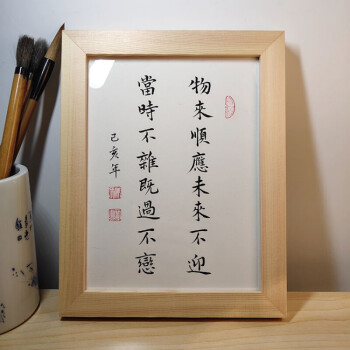 物來順應未來不迎
當時不雜既過不戀
己亥年